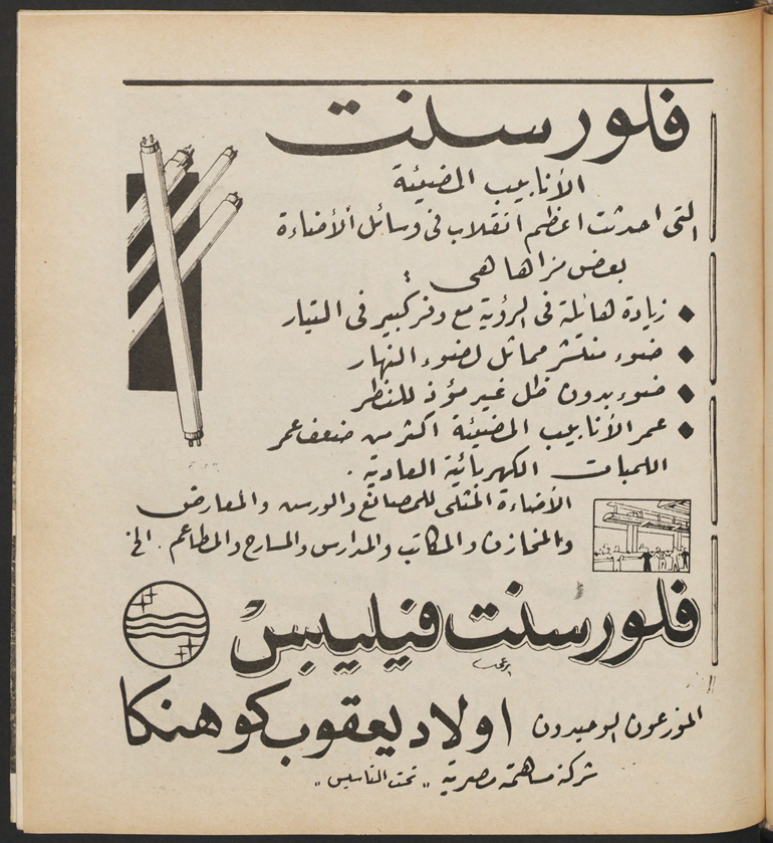 فلورسنت
الأنابيب المضيئة
التى احدثت اعظم انقلاب فى وسائل ألأضاءة
بعض مزاها هى :
زيادة هائلة فى الرؤية مع وفر كبير فى التيار
ضوء منتشر مماثل لضوء النهار
ضوء بدون ظل غير مؤذ للنظر
عمر الأنابيب المضيئة اكثر من ضعف عمر
اللمبات الكهربائية العادية .
الأضاءة المثلى للمصانع والورس والمعارض
والمخازن والمكاتب والمدارس والمسارح والمطاعم . الخ
فلورسنت فيليبس
الموزعون الوحيدون اولاد يعقوب كوهنكا
شركة مساهمة مصرية " تحت التأسيس "